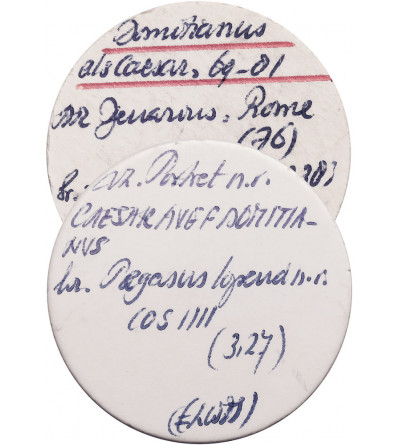 Domitianus
als Caesar, 69-81
AR Denarius. Rome
(76)
Vz. Portret n.r.
CAESAR AVG F DOMITIA-
NVS
kz. Pegasus lopend n.r.
COS IIII
(3,27)